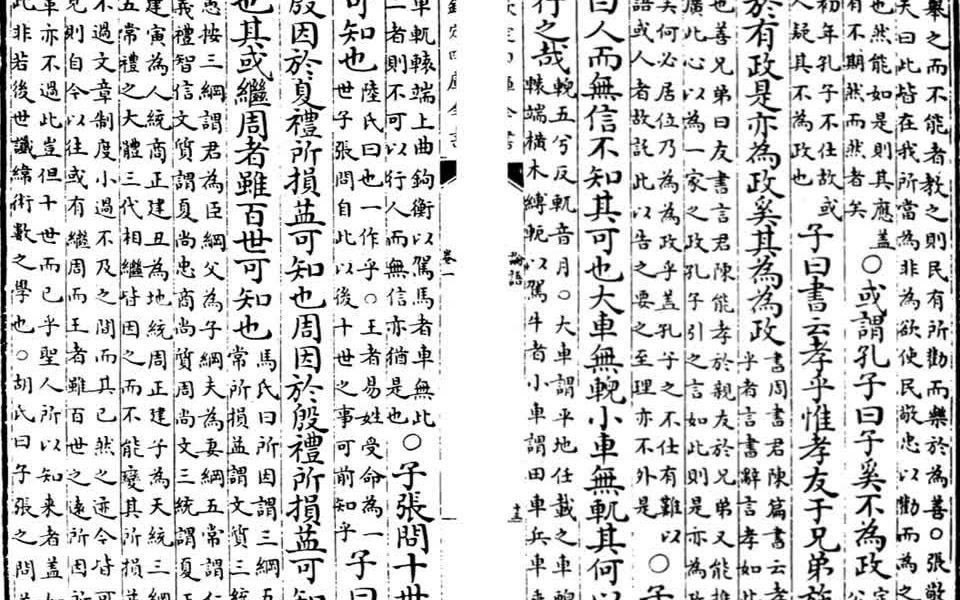 舉之而不能者教之則民有所勸而樂於為善○張敬
夫曰此皆在我所當為非為欲使民敬忠以勸而為之
也然能如是則其應蓋
有不期然而然者矣
○或謂孔子曰子奚不為政
公
初年孔子不仕故或
人疑其不為政也
子曰書云孝乎惟孝友于兄弟施
於有政是亦為政奚其為為政
書周書君陳篇書云孝
乎者言書辭言孝如
也善兄弟曰友書言君陳能孝於親友於兄弟又能推
廣此心以為一家之政孔子引之言如此則是亦為政
矣何必居位乃為為政乎蓋孔子之不仕有難以
語或人者故託此以告之要之至理亦不外是
○子
曰人而無信不知其可也大車無輗小車無軏其何以
行之哉
輗五兮反軏音月○大車謂平地任載之車輗
轅端橫木縛軛以駕牛者小車謂田車兵車
欽定四庫全書
論語
卷一
欽定四庫全書
車軏轅端上曲鉤衡以駕馬者車無此
二者則不可以行人而無信亦猶是也
○子張問十世
可知也
陸氏曰也一作乎○王者易姓受命為一
世子張問自此以後十世之事可前知乎
子曰
殷因於夏禮所損益可知也周因於殷禮所損益可知
也其或繼周者雖百世可知也
馬氏曰所因謂三綱五
常所損益謂文質三統
愚按三綱謂君為臣綱父為子綱夫為妻綱五常謂仁
義禮智信文質謂夏尚忠商尚質周尚文三統謂夏正
建寅為人統商正建丑為地統周正建子為天統三綱
五常禮之大體三代相繼皆因之而不能變其所損益
不過文章制度小過不及之間而其已然之迹今皆可
見則自今以往或有繼周而王者雖百世之遠所因所
革亦不過此豈但十世而已乎聖人所以知来者蓋如
此非若後世讖緯術數之學也○胡氏曰子張之問蓋